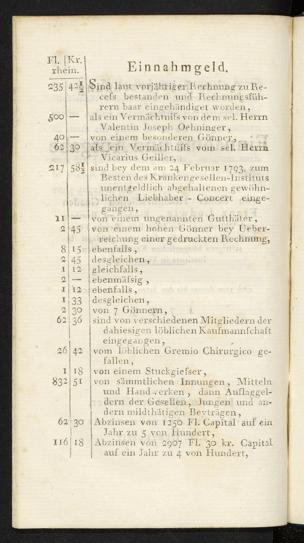 Fl. | Kr. Einnahmgeld.
rhein.
235 42½ Sind laut vorjähriger Rechnung zu Re-
cess bestanden und Rechnungsfüh-
rern baar eingehändiget worden,
500 — als ein Vermächtniſs von dem sel. Herrn
Valentin Joseph Oehninger,
40 — von einem besonderen Gönner,
62 30 als ein Vermächtniſs vom sel. Herrn
Vicarius Geiller,
217 58½ sind bey dem am 24 Februar 1793, zum
Besten des Krankengesellen-Instituts
unentgeldlich abgehaltenen gewöhn-
lichen Liebhaber-Concert einge-
gangen,
11 — von einem ungenannten Gutthäter,
2 45 von einem hohen Gönner bey Ueber-
reichung einer gedruckten Rechnung,
8 15 ebenfalls,
2 45 desgleichen,
1 12 gleichfalls,
2 — ebenmäſsig,
1 12 ebenfalls,
1 33 desgleichen,
2 30 von 7 Gönnern,
62 36 sind von verschiedenen Mitgliedern der
dahiesigen löblichen Kaufmannſchaft
eingegangen,
26 42 vom löblichen Gremio Chirurgico ge-
fallen,
1 18 von einem Stuckgieſser,
832 51 von sämmtlichen Innungen, Mitteln
und Handwerken, dann Auflaggel-
dern der Gesellen, Jungen und an-
dern mildthätigen Beyträgen,
62 30 Abzinsen von 1250 Fl. Capital auf ein
Jahr zu 5 von Hundert,
116 18 Abzinsen von 2907 Fl. 30 kr. Capital
auf ein Jahr zu 4 von Hundert,